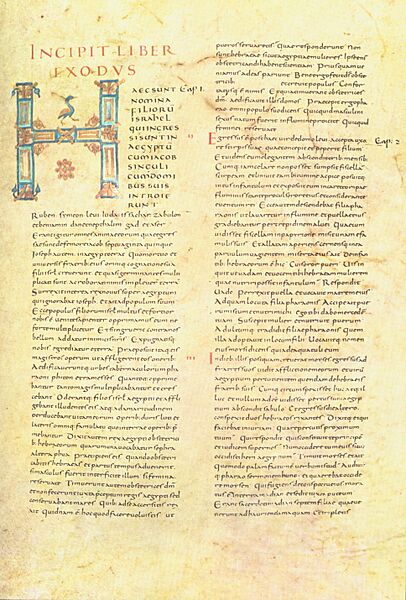 INCIPIT LIBER
EXODUS
HAEC SUNT Cap. 1.
NOMINA
FILIORU
ISRAHEL
QUI INGRES
SI SUNT IN
AEGYPTU
CUM IACOB
SINGULI
CUM DOMI
BUS SUIS
INTROIE
RUNT
Ruben symeon leui iuda issachar zabulon
et beniamin dan et nepthalim gad et aser
Erant igitur omnes animae eorum quae egres
sae sunt de femore iacob septuaginta quinque
Ioseph autem in aegypto erat Quo mortuo et
uniuersis fratribus eius omniq cognatione sua
filii isrl creuerunt et quasi germinantes multi
plicati sunt ac roborati nimis impleuerunt terra
Surrexit interea rex nouus super aegyptum
qui ignorabat ioseph Et ait ad populum suum
Ecce populus filiorum isrl multus et fortior
nobis uenite sapienter opprimamus eum ne
forte multiplicetur Et si ingruerit contra nos
bellum addatur inimicis nris Expugnatisq
nobis egrediatur e terra Praeposuit itaq eis
magistros operum ut affligerent eos onerib
Aedificaueruntq urbes tabernaculorum pha
raoni phiton et ramesses Quanto opprime
bant eos tanto magis multiplicabantur et cres
cebant Oderantq filios isrl aegyptii et afflige
bant illudentes eis atq ad amaritudinem
perducebant uitam eorum operib duris luti et
lateris omniq famulatu quo in terrae operib p
mebantur Dixit autem rex aegypti obstetricib
hebraeorum quarum una uocabatur sephra
altera phua Praecipiens eis Quando obstetri
cabitis hebraeas et partus tempus aduenerit
si masculus fuerit interficite illum si femina
reseruate Timuerunt autem obstetrices dm
et non fecerunt iuxta praeceptum regis aegypti sed
conseruabant mares Quib ad se accersitis rex
ait Quidnam e hoc quod facere uoluistis ut
pueros seruaretis Quae responderunt Non
sunt hebraeae sicut aegyptiae mulieres Ipsae
obstetricandi habent scientiam Priusquam ue
niamus ad eas pariunt Bene ergo fecit ds obste
tricib et creuit populus Confor
tatusq e nimis Et quia timuerant obstetrices
dm aedificauit illis domos Praecepit ergo phara
o omni populo suo dicens Quicquid masculini
sexus natum fuerit in flumen proicite Quicquid
feminei reseruate
Egressus e post haec uir de domo leui accepta uxo Cap. 2
re stirpis suae quae concepit et peperit filium
Et uidens eum elegantem abscondit trib mensib
Cumq iam celare non posset sumpsit fiscella
scirpeam et liniuit eam bitumine ac pice posuitq
intus infantulum et exposuit eum in carecto ripae
fluminis stante procul sorore eius et considerante
euentum rei Ecce autem descendebat filia pha
raonis ut lauaretur in flumine et puellae eius
gradiebantur per crepidinem aluei Quae cum
uidisset fiscellam in papyrione misit unam e fa
mulis suis Et allatam aperiens cernensq in ea
paruulum uagientem miserta eius ait De infan
tib hebraeorum e hic Cui soror pueri Uis in
quit ut uadam et uocem tibi hebraeam mulierem
quae nutrire possit infantulum Respondit
Uade Perrexit puella et uocauit matrem eius
Ad quam locuta filia pharaonis Accipe ait pue
rum istum et nutri mihi Ego tibi dabo mercede
tuam Suscepit mulier et nutriuit puerum
Adultumq tradidit filiae pharaonis Quem
illa adoptauit in locum filii Uocauitq nomen
eius mosi dicens quia de aqua tuli eum
In dieb illis postquam creuerat moses egressus ad
fratres suos uidit afflictionem eorum et uirum
aegyptium percutientem quendam de hebraeis
fratrib suis Cumq circumspexisset huc atq il
luc et nullum adesse uidisset percussum aegyp
tium abscondit sabulo Et egressus die altero
conspexit duos hebraeos rixantes Dixitq ei qui
faciebat iniuriam Quare percutis proximum
tuum Qui respondit Quis constituit te principe
et iudicem super nos Num occidere me tu uis sicut
occidisti heri aegyptium Timuit moses et ait
Quomodo palam factum e uerbum istud Audiuit
q pharao sermonem hunc et quaerebat occide
re mosen Qui fugiens de conspectu eius mora
tus e in terra madian et sedit iuxta puteum
Erant sacerdoti madian septem filiae quae ue
nerunt ad hauriendam aquam Et impletis